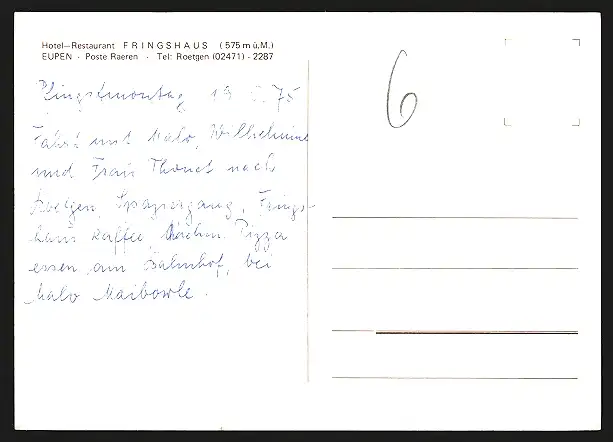 Hotel–Restaurant FRINGSHAUS (575 m ü.M.)
EUPEN · Poste Raeren · Tel: Roetgen (02471) - 2287
6
Pfingstmontag 19 5. 75
Fahrt mit Malo, Wilhelmine
und Frau Thonet nach
Roetgen, Spaziergang, Frings-
haus Kaffee, Kuchen. Pizza
essen am Bahnhof, bei
Malo Maibowle.